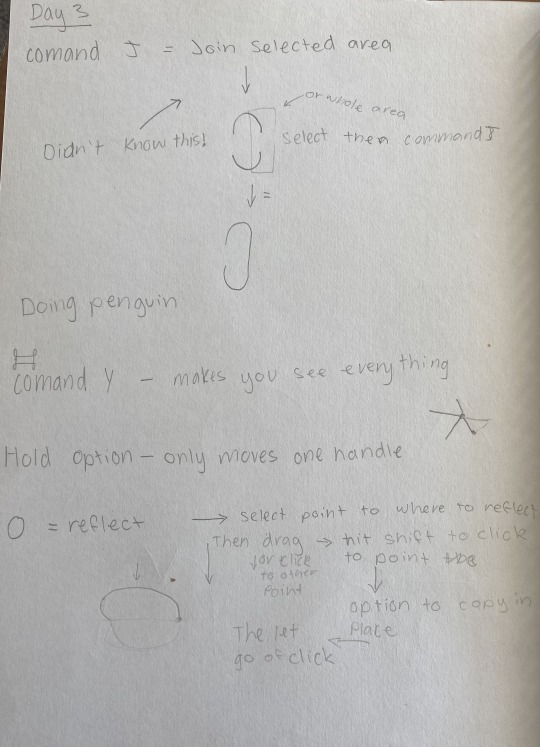 Day 3
comand J = Join selected area
or whole area
Didn't know this!
select then command J
=
Doing penguin
⌘
comand Y - makes you see everything
Hold option - only moves one handle
O = reflect → select point to where to reflect
Then drag → hit shift to click
/or click to point
to other
point
option to copy in
The let place
go of click